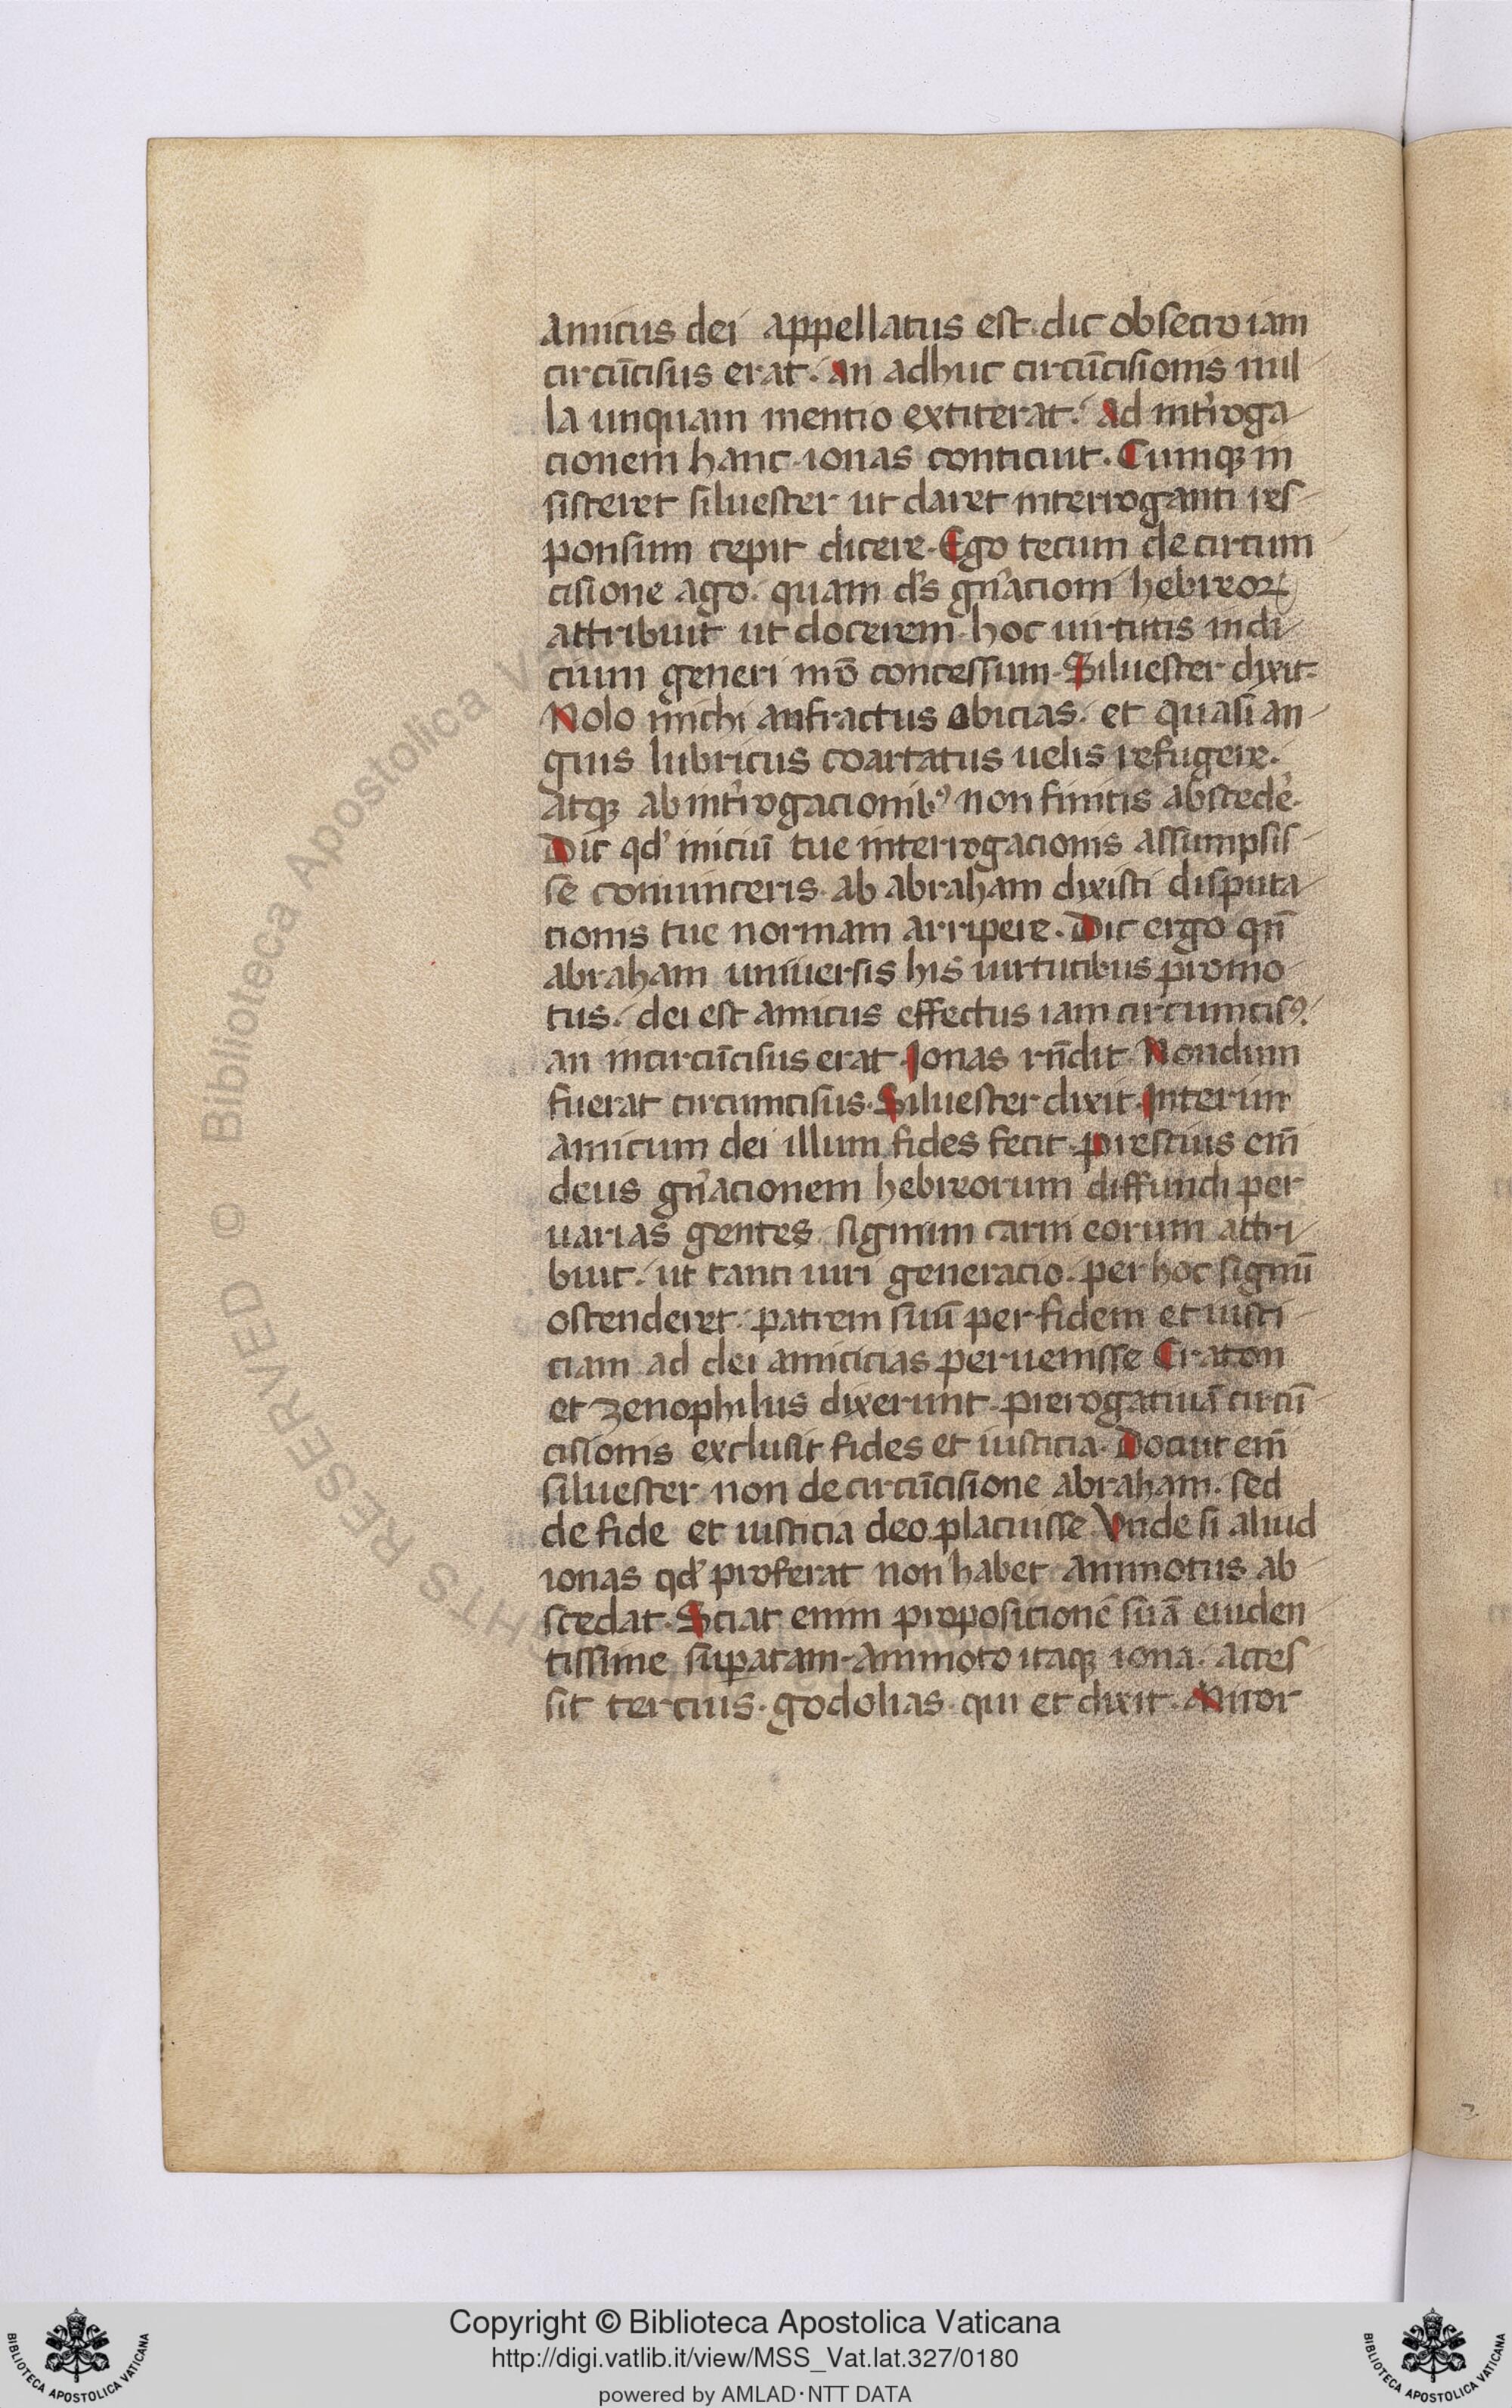 amicus dei appellatus est. dic obsecro iam
circūcisus erat. an adhuc circūcisionis nul
la unquam mentio extiterat. Ad int̾roga
cionem hanc ionas conticuit. Cumqꝫ in
sisteret siluester ut daret interroganti res
ponsum cepit dicere. Ego tecum de circum
cisione ago. quam d̄s gn̄acioni hebreoꝝ
attribuit ut docerem hoc uirtutis indi
cium generi mō concessum. Siluester dixit.
Nolo michi anfractus obicias. et quasi an
guis lubricus coartatus uelis refugere.
atqꝫ ab int̾rogacionibꝰ non finitis abscede̾.
Dic qd̾ iniciū tue interrogacionis assumpsis
se conuinceris. ab abraham dixisti disputa
cionis tue normam arripere. Dic ergo qn̄
abraham uniuersis his uirtutibus promo
tus. dei est amicus effectus iam circumcisꝰ.
an incircūcisus erat. Ionas rn̄dit. Nondum
fuerat circumcisus. Siluester dixit. Interim
amicum dei illum fides fecit. prescius em̄
deus gn̄acionem hebreorum diffundi per
uarias gentes. signum carni eorum attri
buit. ut tanti uiri generacio. per hoc signū
ostenderet. patrem suū per fidem et iusti
ciam ad dei amicicias peruenisse Craton
et zenophilus dixerunt. prerogatiuā circū
cisionis exclusit fides et iusticia. Docuit em̄
siluester non de circūcisione abraham. sed
de fide et iusticia deo placuisse. Vnde si aliud
ionas qd̾ proferat non habet ammotus ab
scedat. Sciat enim proposicionē suā euiden
tissime suꝑatam. Ammoto itaqꝫ iona. acces
sit tercius. godolias. qui et dixit. Miror
Biblioteca Apostolica Vaticana ©
RIGHTS RESERVED
Copyright © Biblioteca Apostolica Vaticana
http://digi.vatlib.it/view/MSS_Vat.lat.327/0180
powered by AMLAD·NTT DATA
BIBLIOTECA APOSTOLICA VATICANA
BIBLIOTECA APOSTOLICA VATICANA